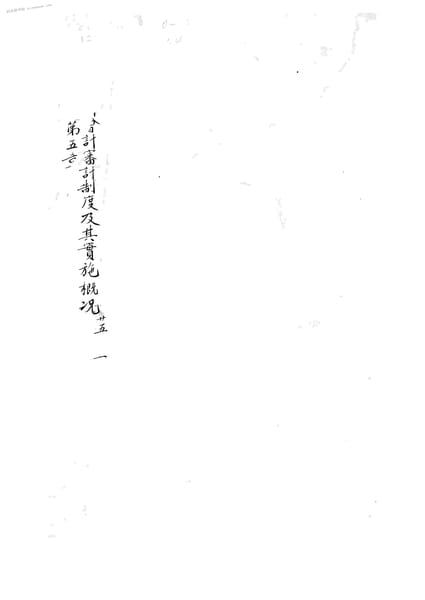 會計審計制度及其實施概況 廿五 一
第五章